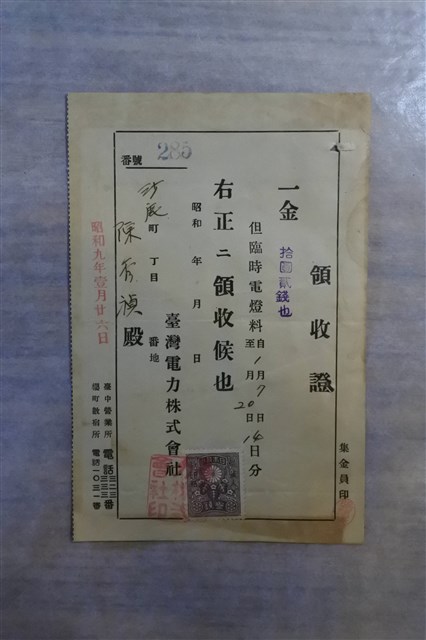 領收證
集金員印
一金
拾圓貳錢也
但臨時電燈料自1月7日至1月20日14日分
右正ニ領收候也
昭和 年 月 日
臺灣電力株式會社
番號 285
町 丁目 番地
陳 殿
昭和九年壹月廿六日
臺中營業所 電話 番
電話一〇三一番